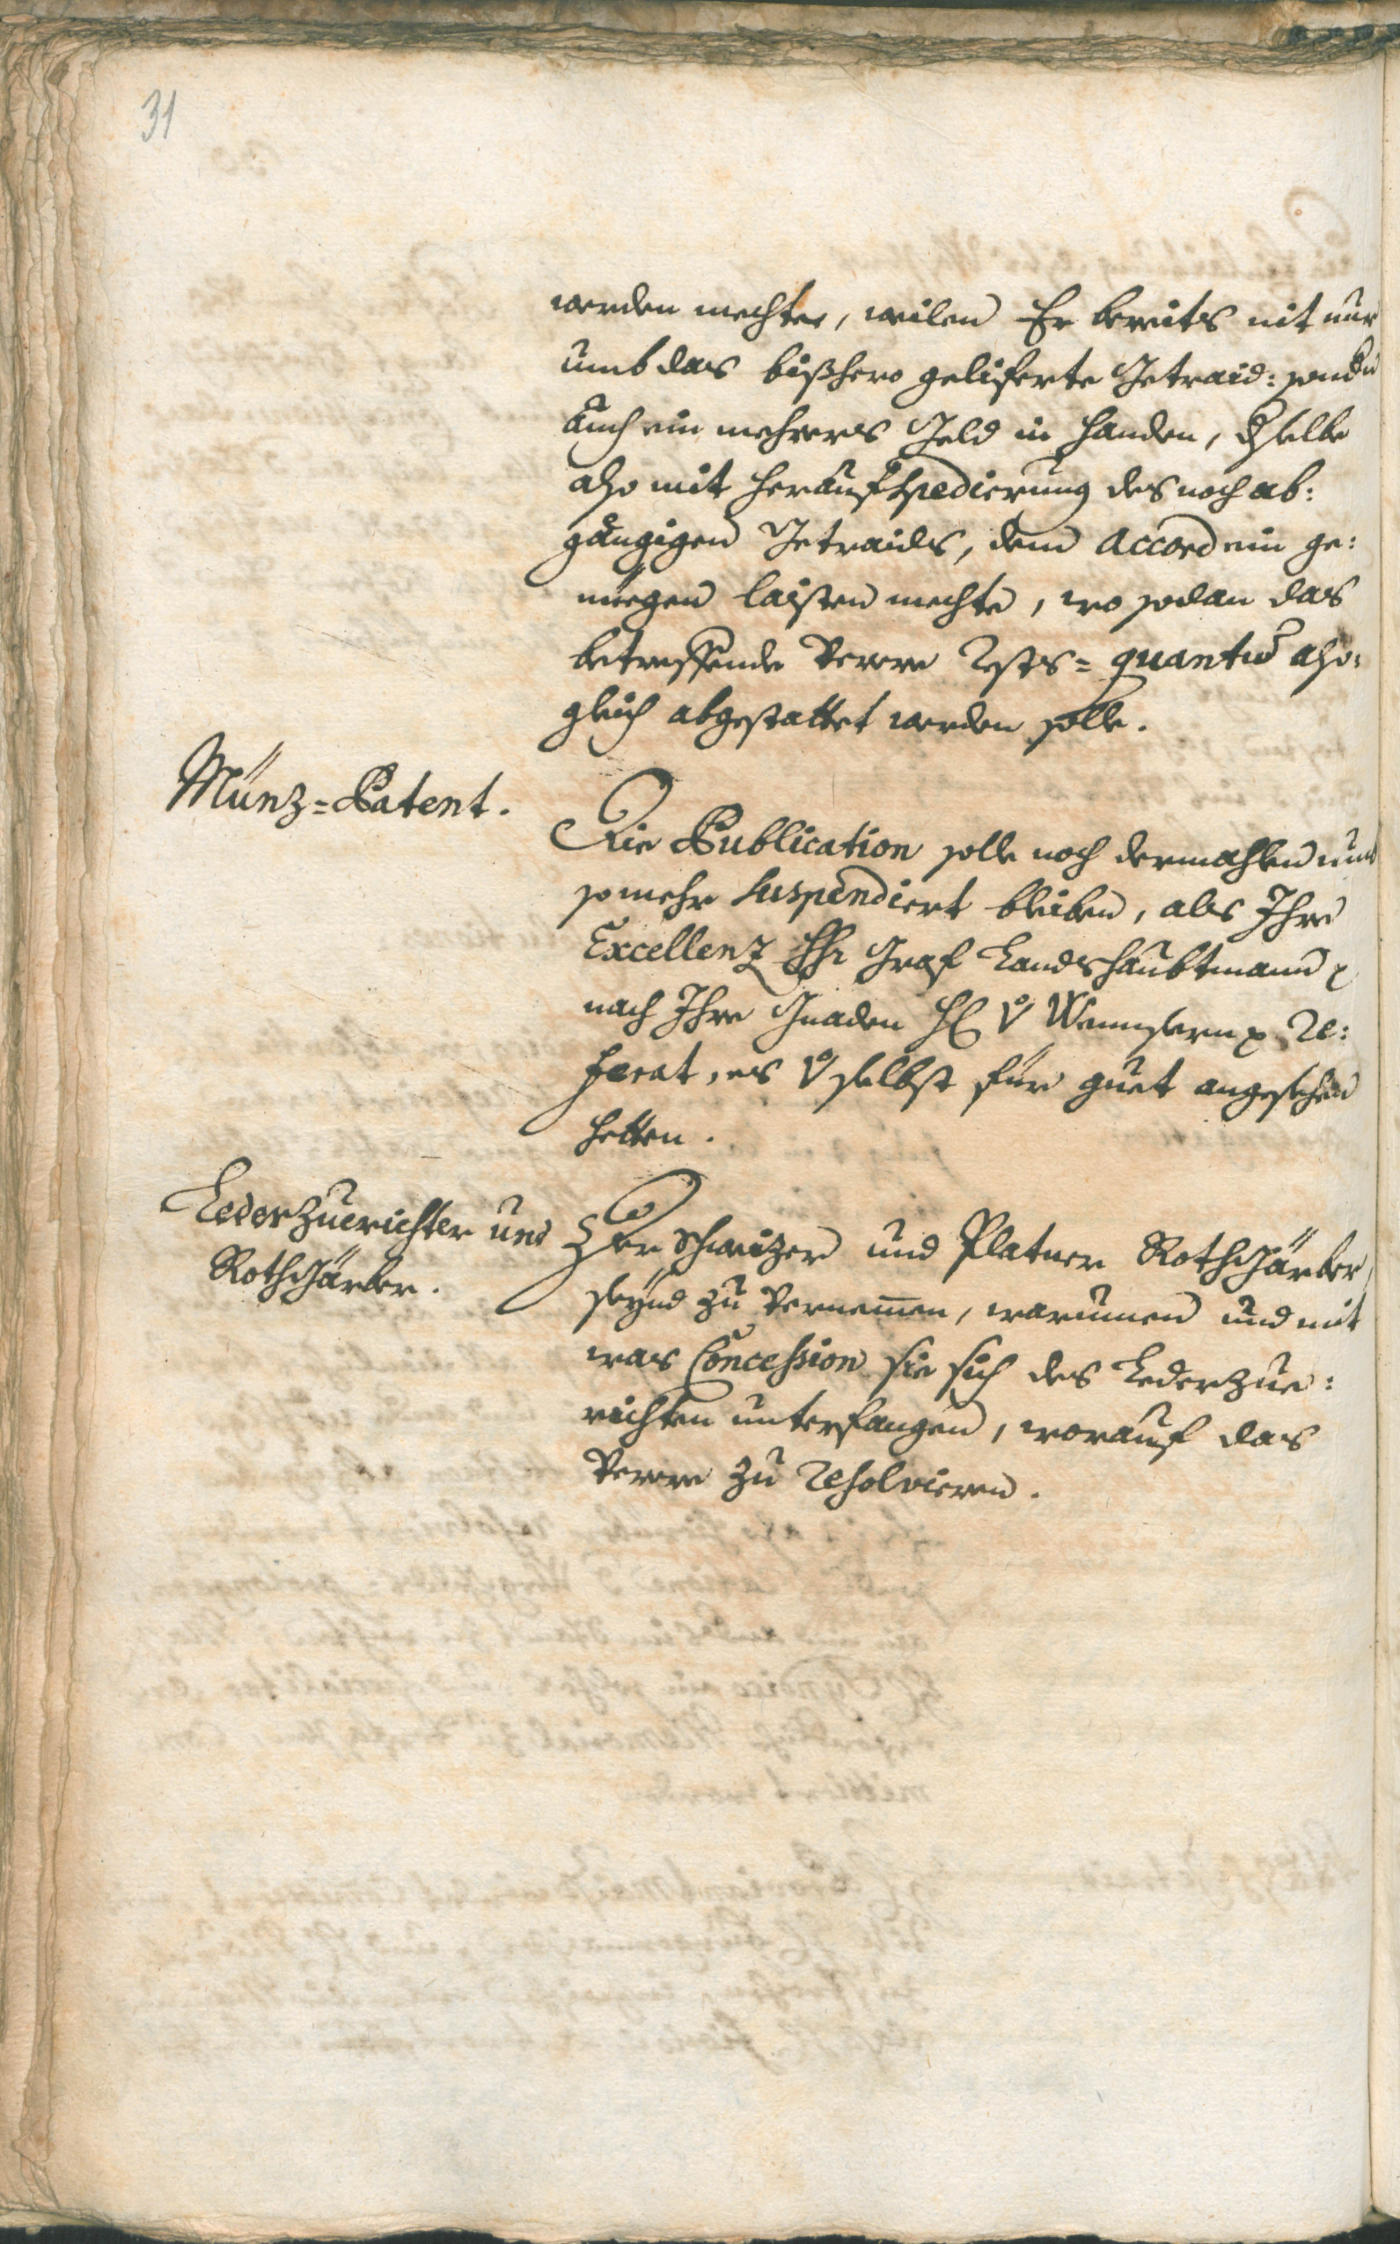 31
werden mechte, weilen Er bereits nit nur
umb das bißhero geliferte Getraid: sondn
auch ein mehrers Geld in Handen, dselbe
also mit heraufspedierung des noch ab:
gängigen Getraids, dem Accord ein ge:
niegen laisten mechte, wo sodan das
betreffende verere Rests= quantu also:
gleich abgestattet werden solle.
Münz=Patent.
Die Publication solle noch dermahlen umb
so mehr suspendiert bleiben, als Ihre
Excellenz Hr Graf Landshaubtmann
nach Ihre Gnaden H v Re:
ferat, es selbst für guet angesehen
hetten.
Lederzuerichter und
Rothgärber.
Der Schweizer und Platner Rothgärber,
seynd zu vernemen, warumen und mit
was Concession sie sich des Lederzue:
richten unterfangen, worauf das
verere zu resolvieren.